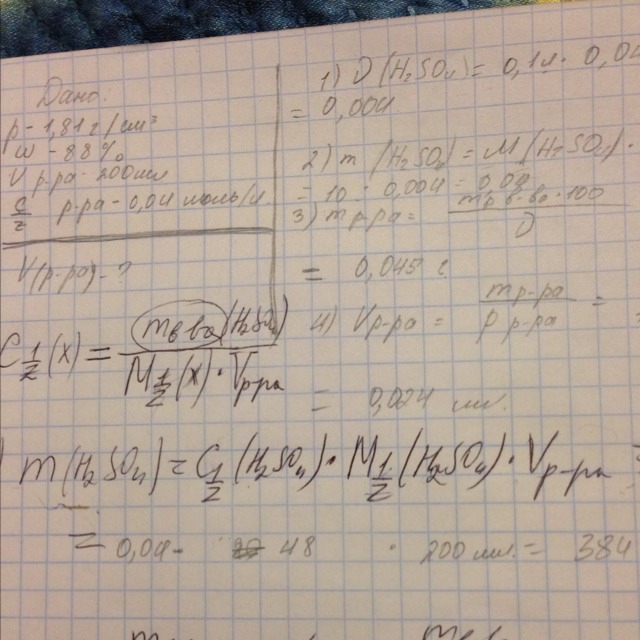 Дано:
ρ - 1,81 г/см³
w - 88%
V р-ра - 200 мл
C 1/2 р-ра - 0,04 моль/л
V(р-ра) - ?
1) D(H₂SO₄) = 0,1л · 0,04
= 0,004
2) m(H₂SO₄) = M(H₂SO₄) ·
= 10 · 0,004 = 0,04
3) mр-ра = mв-ва · 100
= 0,045 г
4) Vр-ра = mр-ра / ρр-ра =
= 0,024 мл.
C 1/2 (x) = mв-ва (H₂SO₄) / M 1/2 (x) · Vр-ра
m(H₂SO₄) = C 1/2 (H₂SO₄) · M 1/2 (H₂SO₄) · Vр-ра =
= 0,04 · 48 · 200 мл = 384